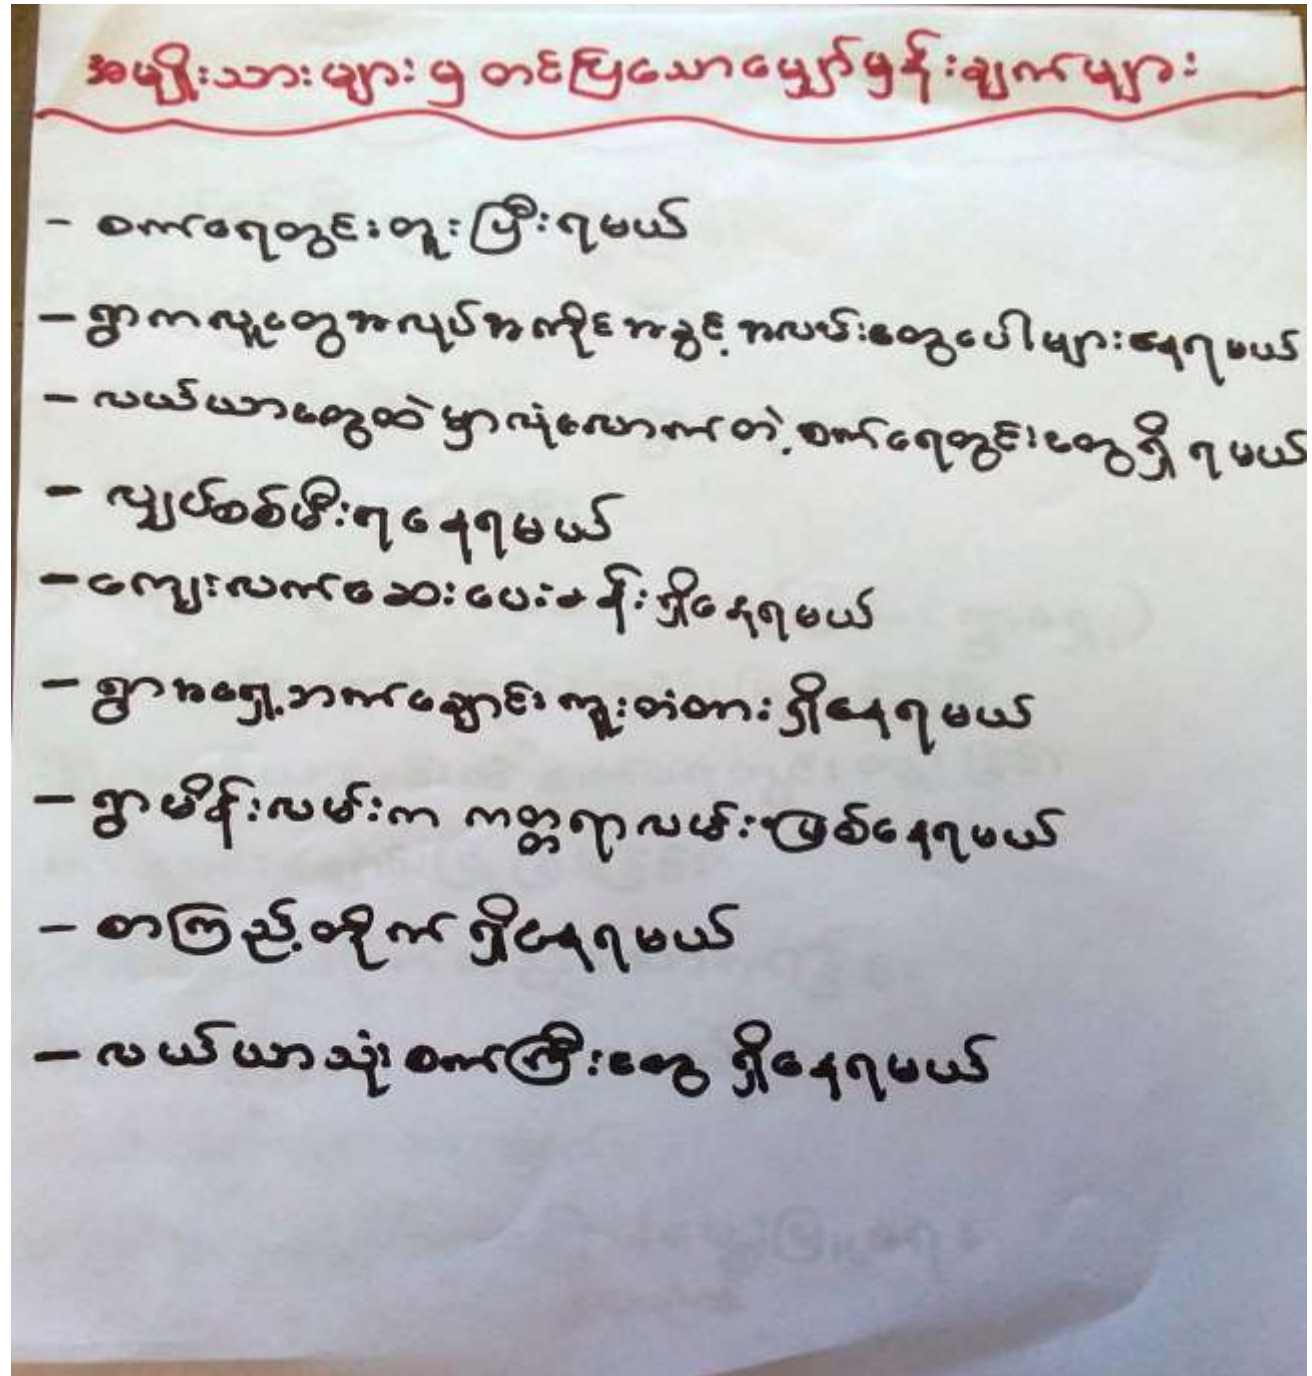 အမျိုးသားများမှ တင်ပြသောမျှော်မှန်းချက်များ
- စက်ရေတွင်းတူးပြီးရမယ်
- ရွာကလူတွေအလုပ်အကိုင်အခွင့်အလမ်းတွေပေါများနေရမယ်
- လယ်ယာတွေထဲမှာလုံလောက်တဲ့စက်ရေတွင်းတွေရှိရမယ်
- လျှပ်စစ်မီးရနေရမယ်
- ကျေးလက်ဆေးပေးခန်းရှိနေရမယ်
- ရွာအရှေ့ဘက်ချောင်းကူးတံတားရှိနေရမယ်
- ရွာမိန်းလမ်းက ကတ္တရာလမ်းဖြစ်နေရမယ်
- စာကြည့်တိုက်ရှိနေရမယ်
- လယ်ယာသုံးစက်ကြီးတွေ ရှိနေရမယ်